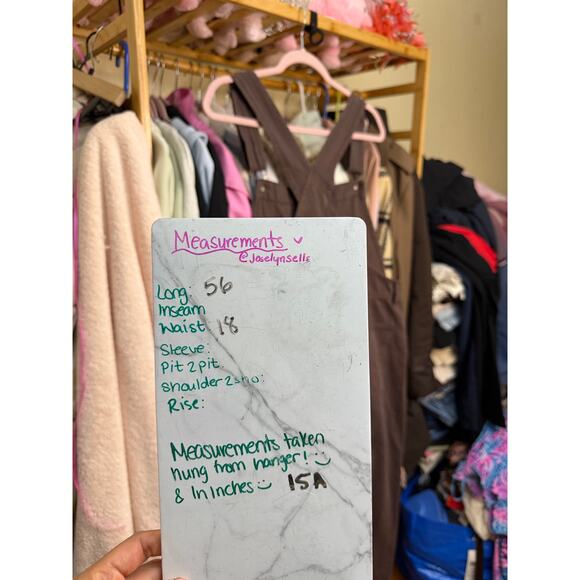 Measurements
@Joselynsells
Long: 56
Inseam
Waist 18
Sleeve:
Pit 2 pit:
shoulder 2 sho:
Rise:
Measurements taken
hung from hanger!
& In Inches 15A